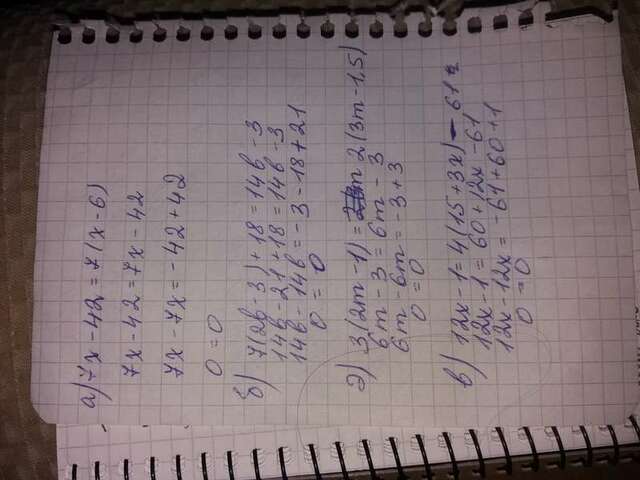 а) 7x - 42 = 7(x - 6)
7x - 42 = 7x - 42
7x - 7x = -42 + 42
0 = 0
б) 7(2b - 3) + 18 = 14b - 3
14b - 21 + 18 = 14b - 3
14b - 14b = -3 - 18 + 21
0 = 0
г) 3(2m - 1) = 2(3m - 1,5)
6m - 3 = 6m - 3
6m - 6m = -3 + 3
0 = 0
в) 12x - 1 = 4(15 + 3x) - 61
12x - 1 = 60 + 12x - 61
12x - 12x = -61 + 60 + 1
0 = 0